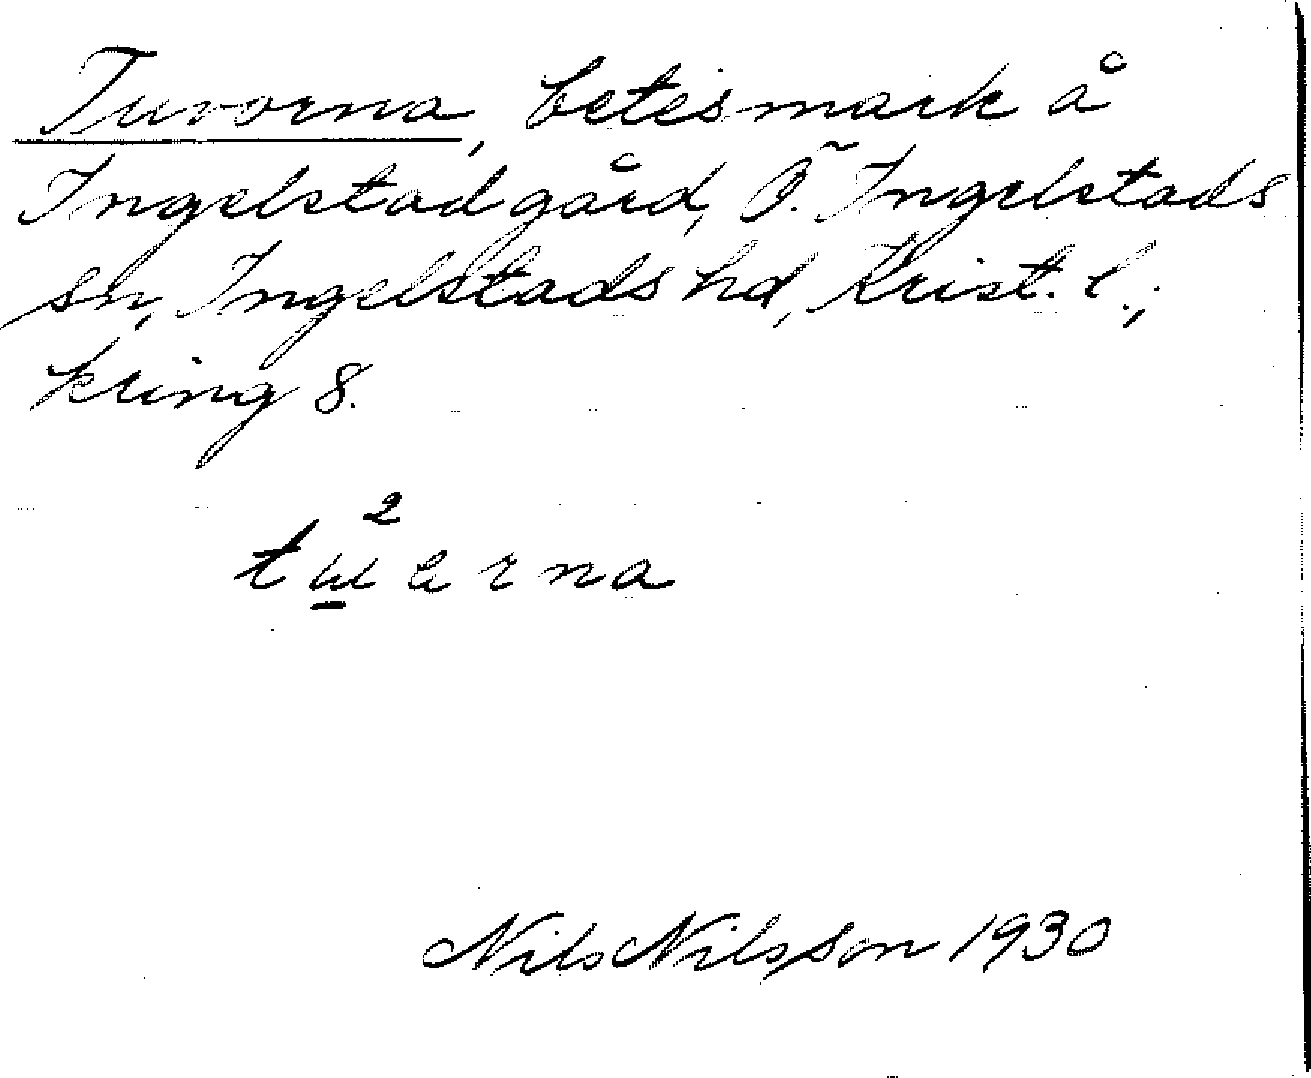 Tuvorna, betesmark å
Ingelstad gård, Ö. Ingelstads
sn, Ingelstads hd, Krist. l.;
kring 8.
Nils Nilsson 1930